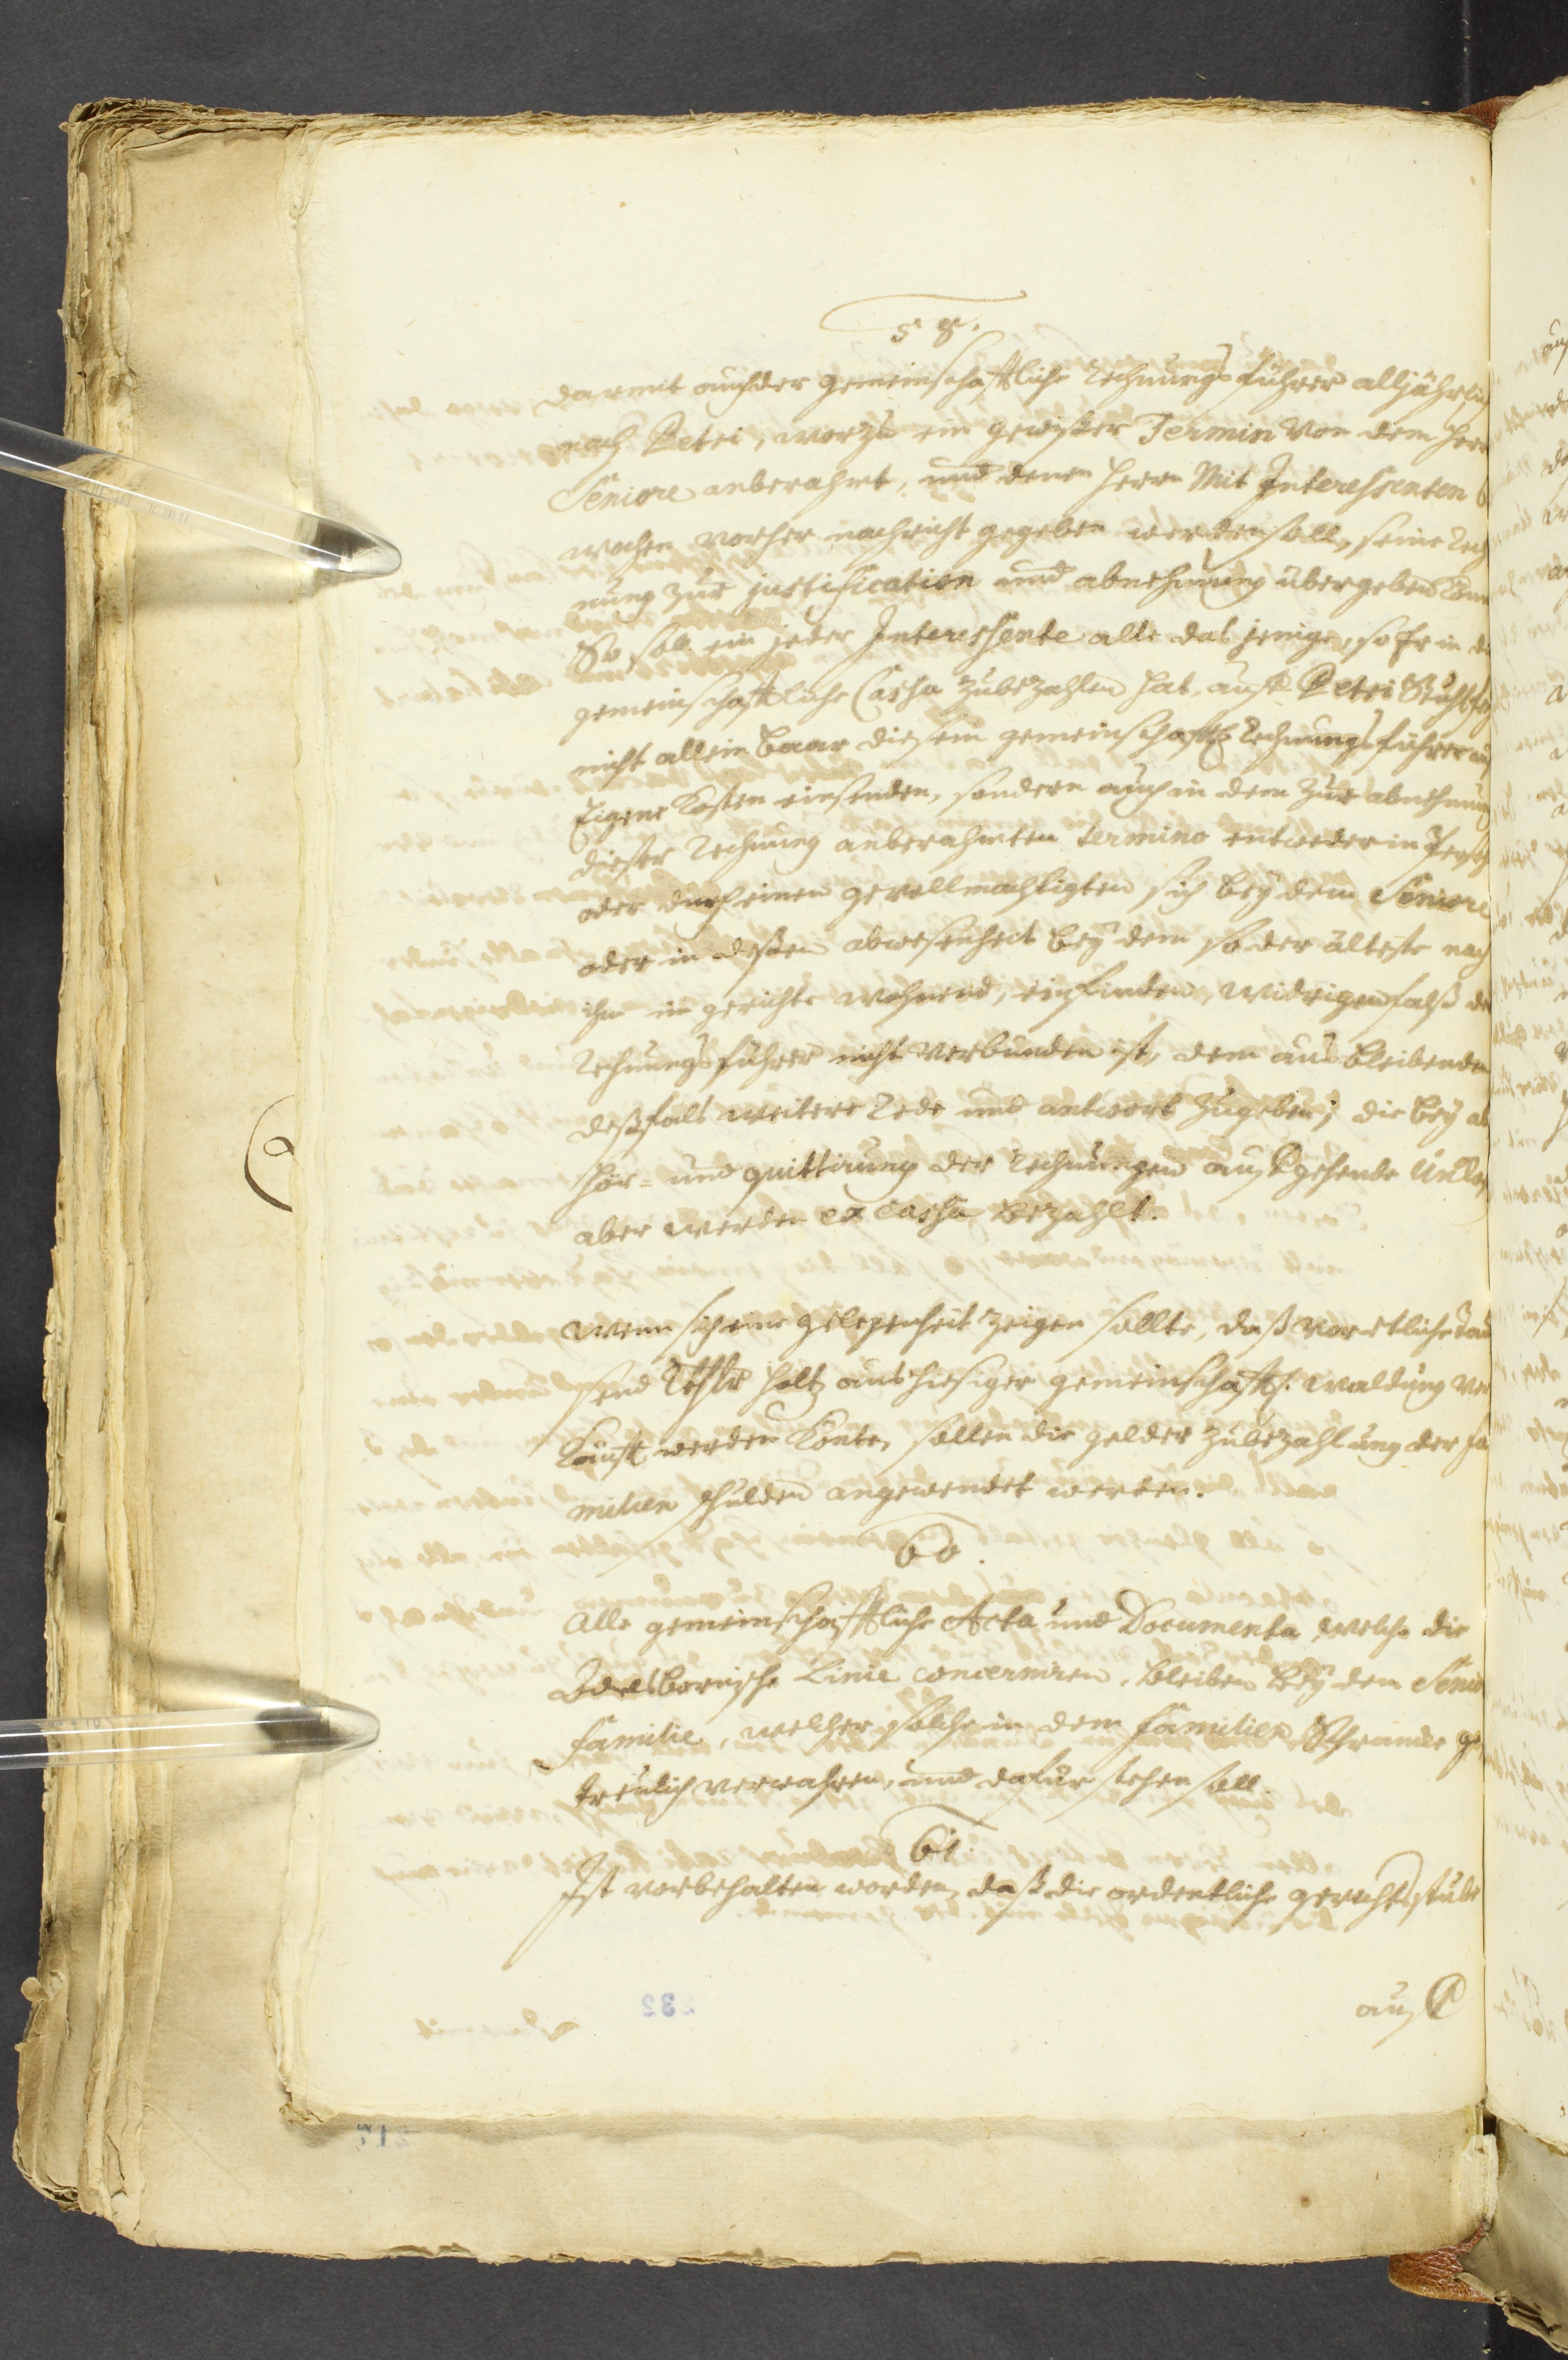 58.
Darmit auch der gemeinschafftliche Rechnungsführer alljährlich
nach Petri, worzu ein gewißer Termin von dem Herrn
Seniore anberahmt, und denen Herrn Mit Interessenten 6
wochen vorher nachricht gegeben werden soll, seine Rech
nung zur justification und abnehmung übergeben könn
So soll ein jeder Interessente alle das jenige, so Er in die
gemeinschafftliche Cassa zubezahlen hat, auf Petri Stuhlfey
nicht allein baar diesem gemeinschafftl. Rechnungsführer auf
Eigene Kosten einsenden, sondern auch in dem zur abnehmung
dießer Rechnung anberahmten termino entweder in Person
oder durch einen gevollmächtigten sich bey dem Seniore
oder in deßen abwesenheit bey dem so der älteste nach
ihm in gerichte wohnend, einfinden, widrigenfalß der
Rechnungsführer nicht verbunden ist, dem ausbleibenden
deßfals weitere Rede und antwort zugeben; die bey ab
hör- und quittirung der Rechnungen aufgehende Unkos
aber werden ex Cassa bezahlt.
Wenn sich eine gelegenheit zeigen sollte, daß vor etliche Tau
send Rthlr Holtz aus hiesiger gemeinschafftl. Waldung ver
kaufft werden könte, sollen die gelder zubezahlung der Fa
milien schulden angewendet werden.
60.
Alle gemeinschafftliche Acta und Documenta, welche die
Linie concerniren, bleiben bey dem Senio
Familie, welcher solche in dem Familien Schrancke ge
treulich verwahren, und dafür stehen soll.
61.
Ist vorbehalten worden, daß die ordentliche gerichtsstube
auf
232
217